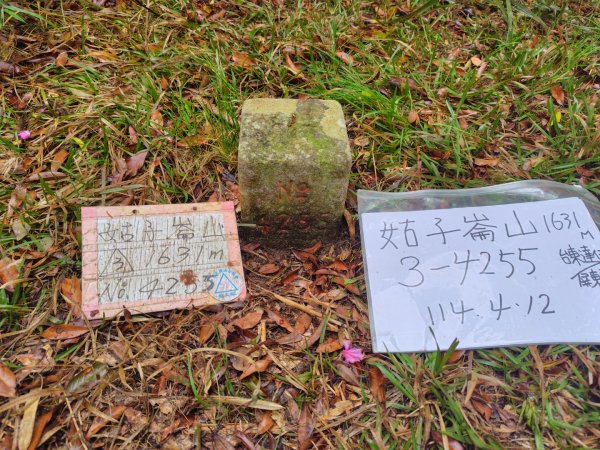 姑子崙山
3 1631m
No 4255
No
姑子崙山 1631M
3-4255
114.4.12